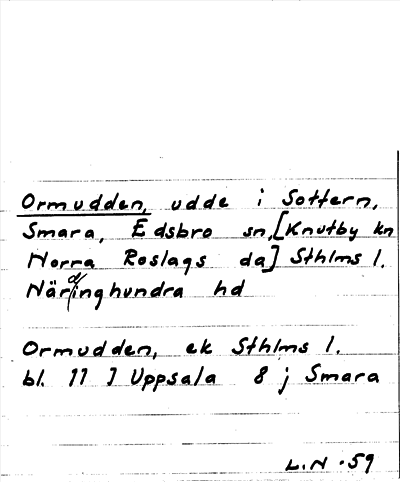 Ormudden, udde i Sottern,
Smara, Edsbro sn, [Knutby kn
Norra Roslags da] Sthlms l.
Närdinghundra hd
Ormudden, ek Sthlms l.
bl. 77 I Uppsala 8 j Smara
L.N. 59